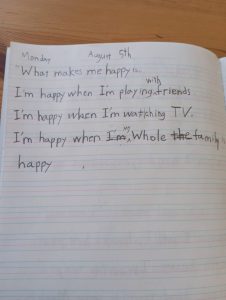 Monday August 5th
"What makes me happy is.
I'm happy when I'm playing with friends
I'm happy when I'm watching TV.
I'm happy when I'm, my Whole the family
happy